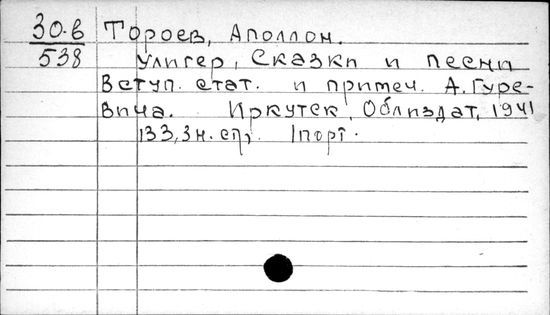 30-в Тороев, Аполлон.
538 Улигер, Сказки и песни
Вступ. стат. и примеч. А. Гуре-
вича. Иркутск, Облиздат, 1941
133, 3 н. стр. 1 порт.